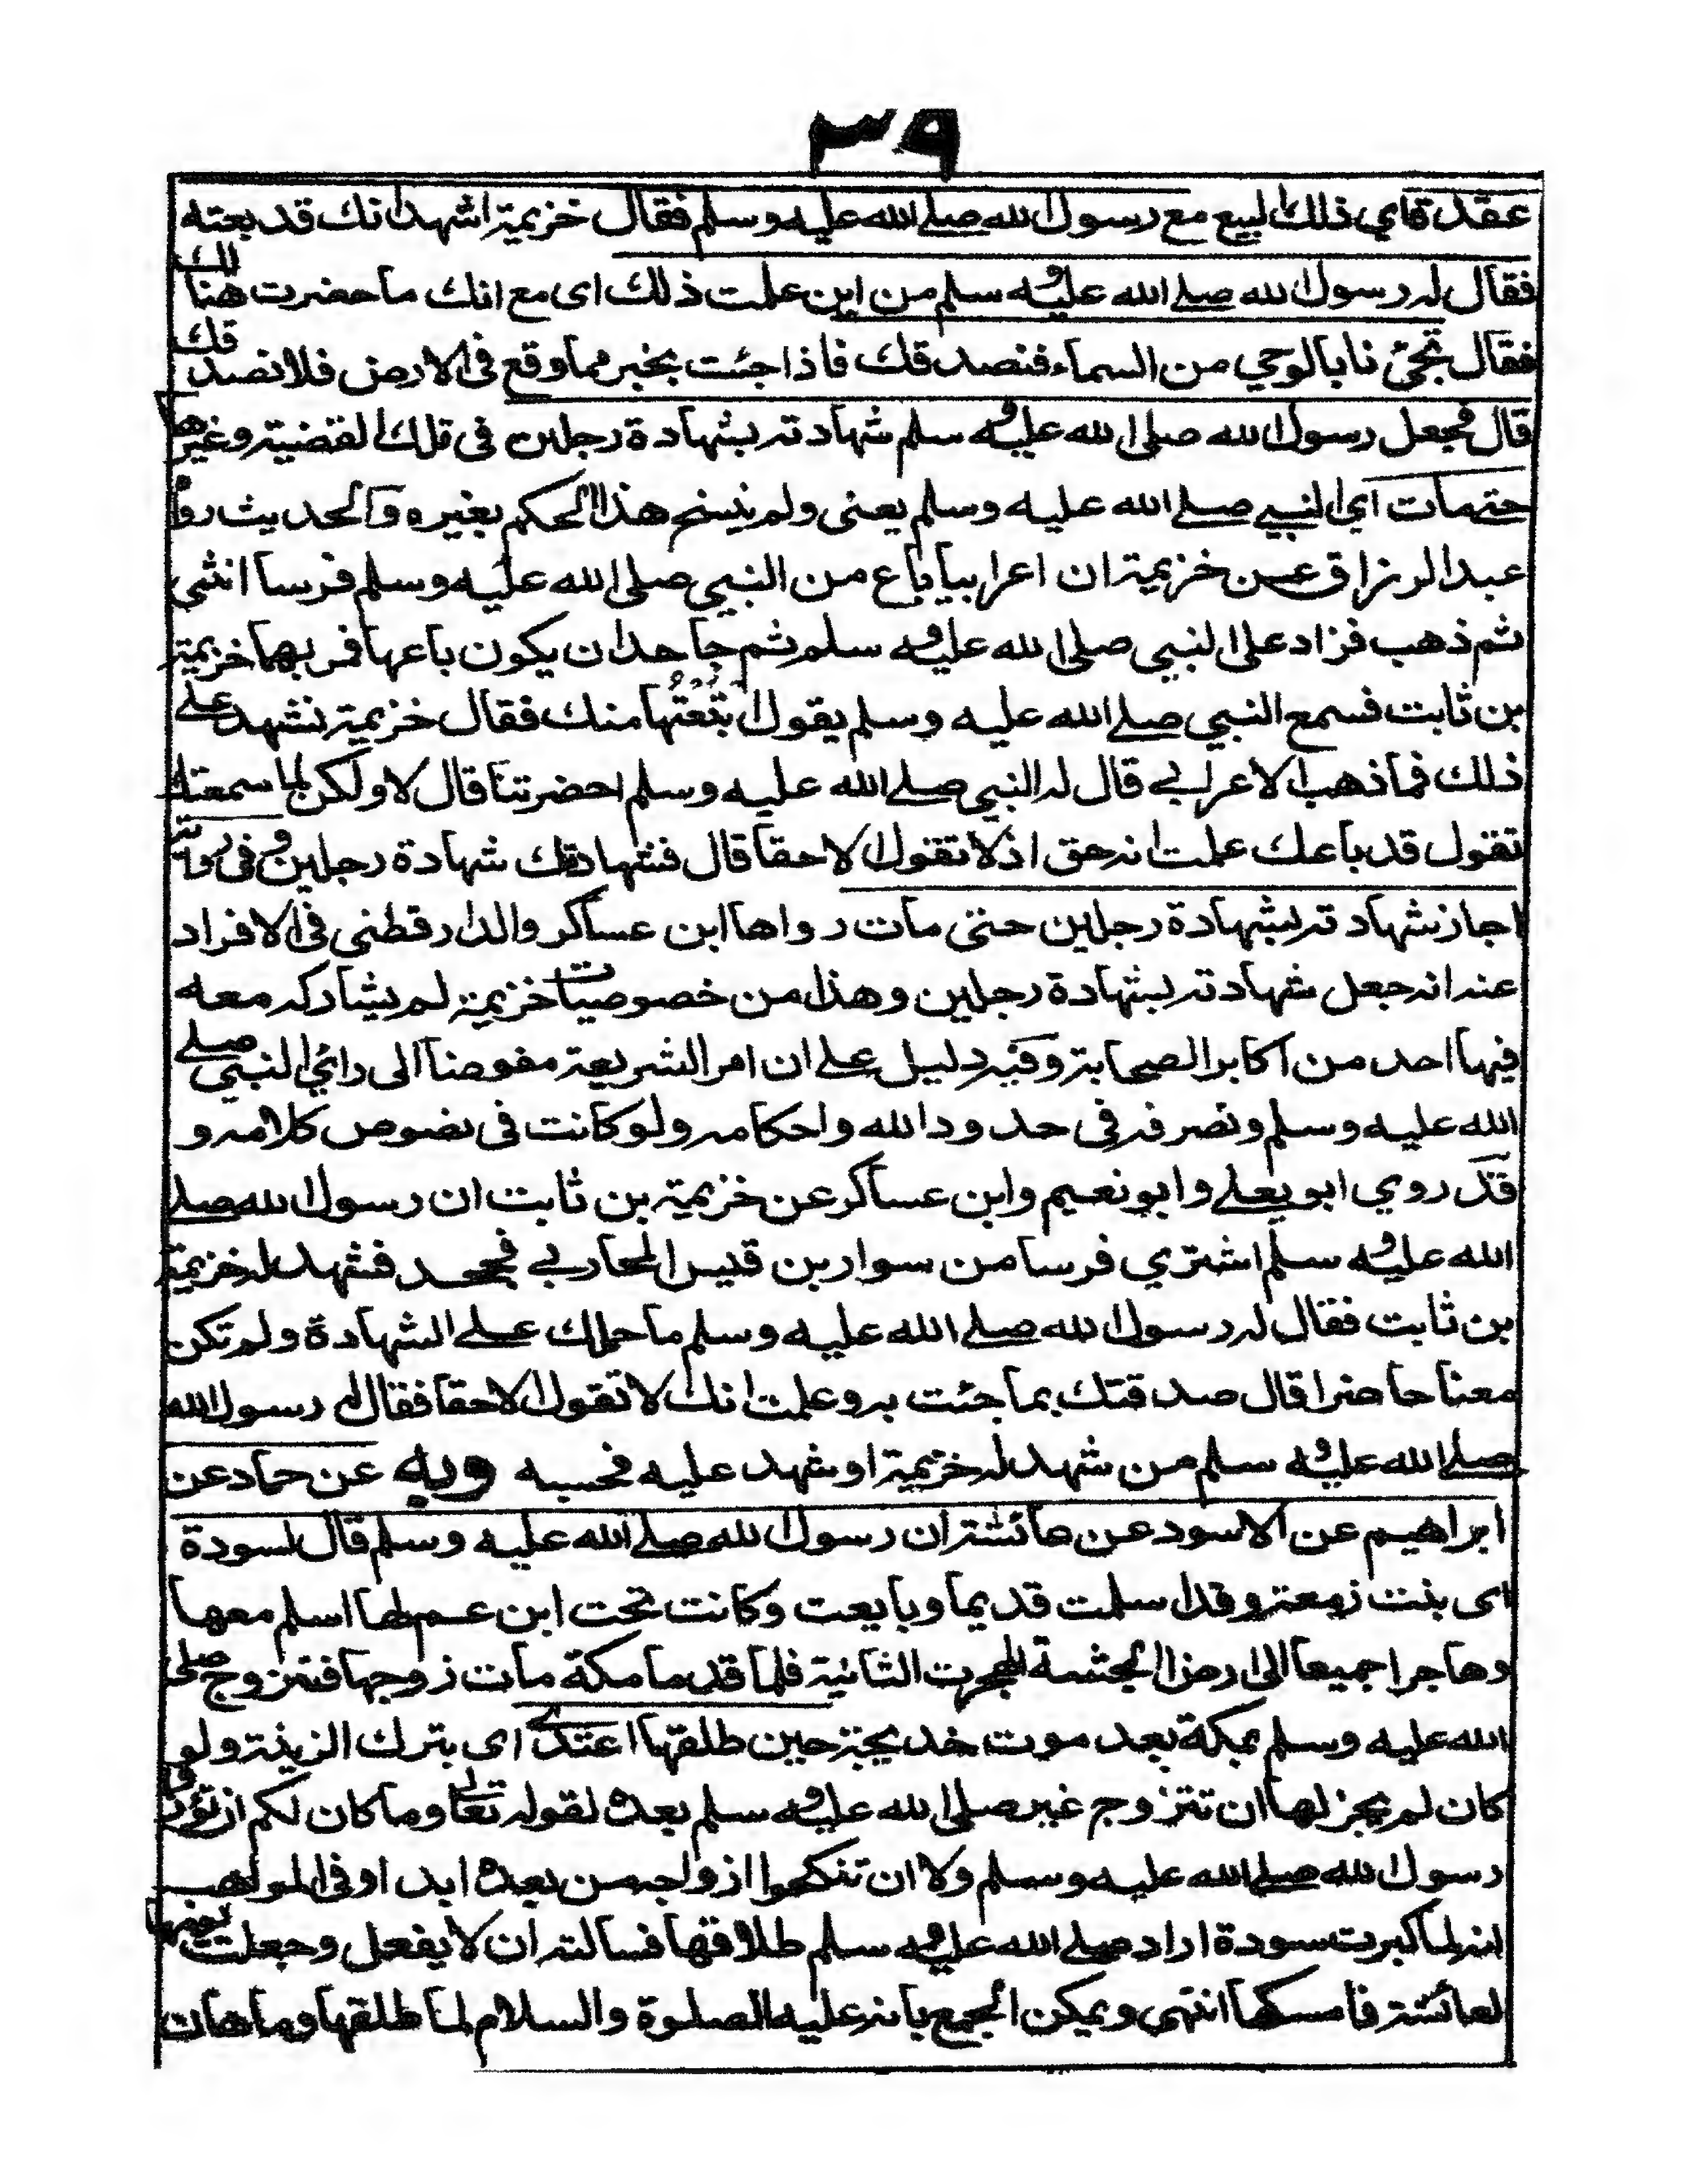 ٣٩
عقدة اي ذلك البيع مع رسول الله صلى الله عليه وسلم فقال خزيمة اشهد انك قد بعته
فقال له رسول الله صلى الله عليه وسلم من اين علمت ذلك اى مع انك ما حضرت هنالك
فقال تجئ نا بالوحي من السماء فنصدقك فاذا جئت بخبر مما وقع فى الارض فلا نصدقك
قال فجعل رسول الله صلى الله عليه وسلم شهادته بشهادة رجلين فى تلك القضية وغيرها
حتى مات اي النبي صلى الله عليه وسلم يعنى ولم ينسخ هذا الحكم بغيره والحديث رواه
عبد الرزاق عن خزيمة ان اعرابيا باع من النبي صلى الله عليه وسلم فرسا انثى
ثم ذهب فزاد على النبي صلى الله عليه وسلم ثم جاحد ان يكون باعها فمر بهما خزيمة
بن ثابت فسمع النبي صلى الله عليه وسلم يقول ابتعتها منك فقال خزيمة نشهد على
ذلك فما ذهب الاعرابي قال له النبي صلى الله عليه وسلم احضرتنا قال لا ولكن لما سمعتك
تقول قد باعك علمت انه حق اذ لا تقول الا حقا قال فشهادتك شهادة رجلين وفى رواية
اجاز شهادته بشهادة رجلين حتى مات رواها ابن عساكر والدارقطنى فى الافراد
عنه انه جعل شهادته بشهادة رجلين وهذا من خصوصيات خزيمة لم يشاركه معه
فيها احد من اكابر الصحابة وفيه دليل على ان امر الشريعة مفوضا الى رائي النبي صلى
الله عليه وسلم ونصرفه في حدود الله واحكامه ولو كانت فى نصوص كلامه و
قد روي ابو يعلى وابو نعيم وابن عساكر عن خزيمة بن ثابت ان رسول الله صلى
الله عليه وسلم اشتري فرسا من سوار بن قيس المحاربي فجحد فشهد له خزيمة
بن ثابت فقال له رسول الله صلى الله عليه وسلم ما حملك على الشهادة ولم تكن
معنا حاضرا قال صدقتك بما جئت به وعلمت انك لا تقول الا حقا فقال له رسول الله
صلى الله عليه وسلم من شهد له خزيمة او شهد عليه فحسبه وبه عن حماد عن
ابراهيم عن الاسود عن عائشة ان رسول الله صلى الله عليه وسلم قال لسودة
اى بنت زمعة وقد اسلمت قديما وبايعت وكانت تحت ابن عم لها اسلم معها
وهاجرا جميعا الى ارض الحبشة الهجرت الثانية فلما قدما مكة مات زوجها فتزوج صلى
الله عليه وسلم بمكة بعد موت خديجة حين طلقها اعتدى اى بترك الزينة ولو
كان لم يجز لها ان تتزوج غيره صلى الله عليه وسلم بعده لقوله تعالى وما كان لكم ان تؤذوا
رسول الله صلى الله عليه وسلم ولا ان تنكحوا ازواجه من بعده ابدا وفى المواهب
انه لما كبرت سودة اراد صلى الله عليه وسلم طلاقها فسالته ان لا يفعل وجعلت يومها
لعائشة فامسكها انتهى ويمكن الجمع بانه عليه الصلوة والسلام لما طلقها وما هات